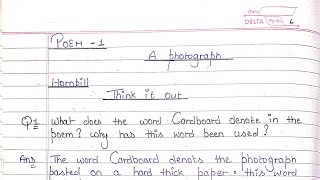 Date
DELTA Pg No. 6
POEM -1
A photograph
Hornbill
Think it out
Q1 What does the word Cardboard denote in the
poem? Why has this word been used?
Ans The word Cardboard denots the photograph
pasted on a hard thick paper. this word